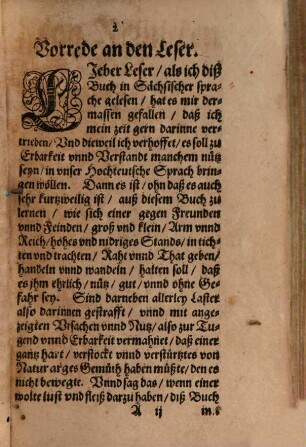 2
Vorrede an den Leser.
LJeber Leser / als ich diß
Buch in Sächsischer spra-
che gelesen / hat es mir der-
massen gefallen / daß ich
mein zeit gern darinne ver-
trieben / Vnd dieweil ich verhoffet / es soll zu
Erbarkeit vnnd Verstandt manchem nütz
seyn / in vnser Hochteutsche Sprach brin-
gen wöllen. Dann es ist / ohn daß es auch
sehr kurtzweilig ist / auß diesem Buch zu
lernen / wie sich einer gegen Freunden
vnnd Feinden / groß vnd klein / Arm vnnd
Reich / hohes vnd nidriges Stands / in tich-
ten vnd trachten / Raht vnnd That geben /
handeln vnnd wandeln / halten soll / daß
es jhm ehrlich / nütz / gut / vnnd ohne Ge-
fahr sey. Sind darneben allerley Laster
also darinnen gestrafft / vnnd mit ange-
zeigten Vrsachen vnnd Nutz / also zur Tu-
gend vnnd Erbarkeit vermahnet / daß einer
gantz hart / verstockt vnnd verstürtztes von
Natur arges Gemüth haben müßte / den es
nicht bewegte. Vnnd sag das / wenn einer
wolte lust vnd fleiß darzu haben / diß Buch
A ij